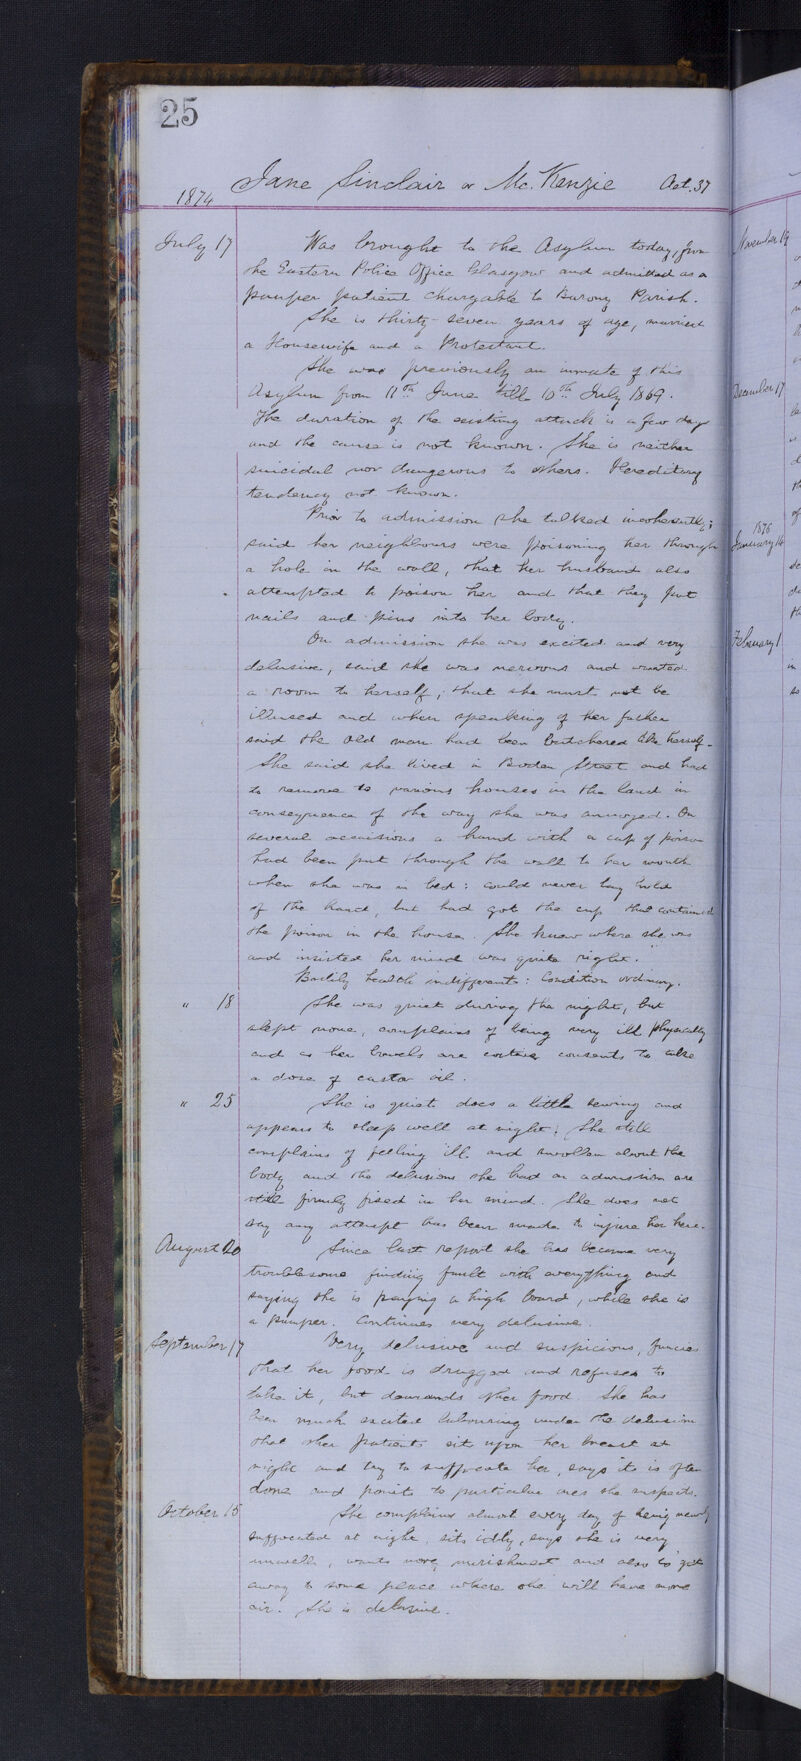 25
Jane Sinclair or Mc.Kenzie Aet. 37
1874
July 17 Was brought to the Asylum today, from
the Eastern Police Office Glasgow and admitted as a
pauper patient chargable to Barony Parish.
She is thirty-seven years of age, married
a Housewife and a Protestant.
She was previously an inmate of this
Asylum from 11th June till 10th July 1869.
The duration of the existing attack is a few days
and the cause is not known. She is neither
suicidal nor dangerous to others. Hereditary
tendency not known.
Prior to admission she talked incoherently;
said her neighbours were poisoning her through
a hole in the wall, that her husband also
attempted to poison her and that they put
nails and pins into her body.
On admission she was excited and very
delusive, said she was nervous and wanted
a room to herself; that she must not be
illused and when speaking of her father
said the old man had been butchered like herself.
She said she lived in Boden Street and had
to remove to various houses in the land in
consequence of the way she was annoyed. On
several occaisions a hand with a cup of poison
had been put through the wall to her mouth
when she was in bed: could never lay hold
of the hand, but had got the cup that contained
the poison in the house. She knew where she was
and insisted her mind was quite right.
Bodily health indifferent: Condition ordinary.
" 18 She was quiet during the night, but
slept none, complains of being very ill physically
and as her bowels are costive consents to take
a dose of castor oil.
" 25 She is quiet does a little sewing and
appears to sleep well at night. She still
complains of feeling ill and swollen about the
body and the delusions she had on admission are
still firmly fixed in her mind. She does not
say any attempt has been made to injure her here.
August 20 Since last report she has become very
troublesome finding fault with everything and
saying she is paying a high board, while she is
a pauper. Continues very delusive.
September 17 Very delusive and suspicious, fancies
that her food is drugged and refuses to
take it, but demands other food. She has
been much excited labouring under the delusion
that other patients sit upon her breast at
night and try to suffocate her, says it is often
done and points to particular ones she suspects.
October 15 She complains almost every day of being nearly
suffocated at night, sits idly, says she is very
unwell, wants more nurishment and also to get
away to some place where she will have more
air. She is delusive.
November 19
December 17
1875
January 14
February 1